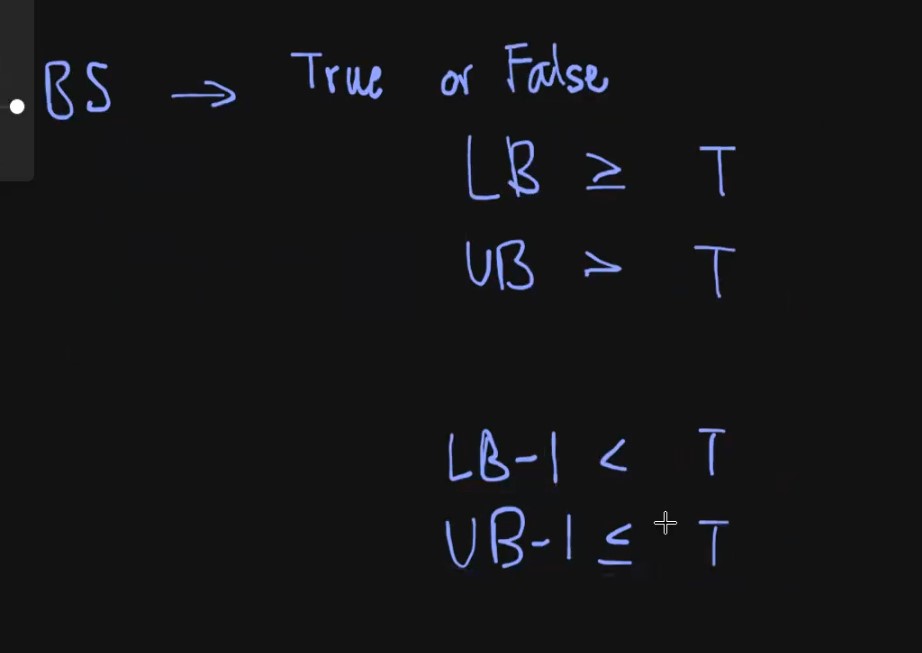 BS → True or False
LB ≥ T
UB > T
LB-1 < T
UB-1 ≤ T